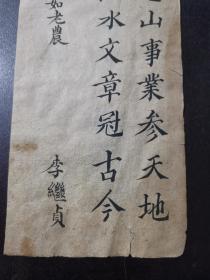 山事業参天地
水文章冠古今
如老農
李繼貞